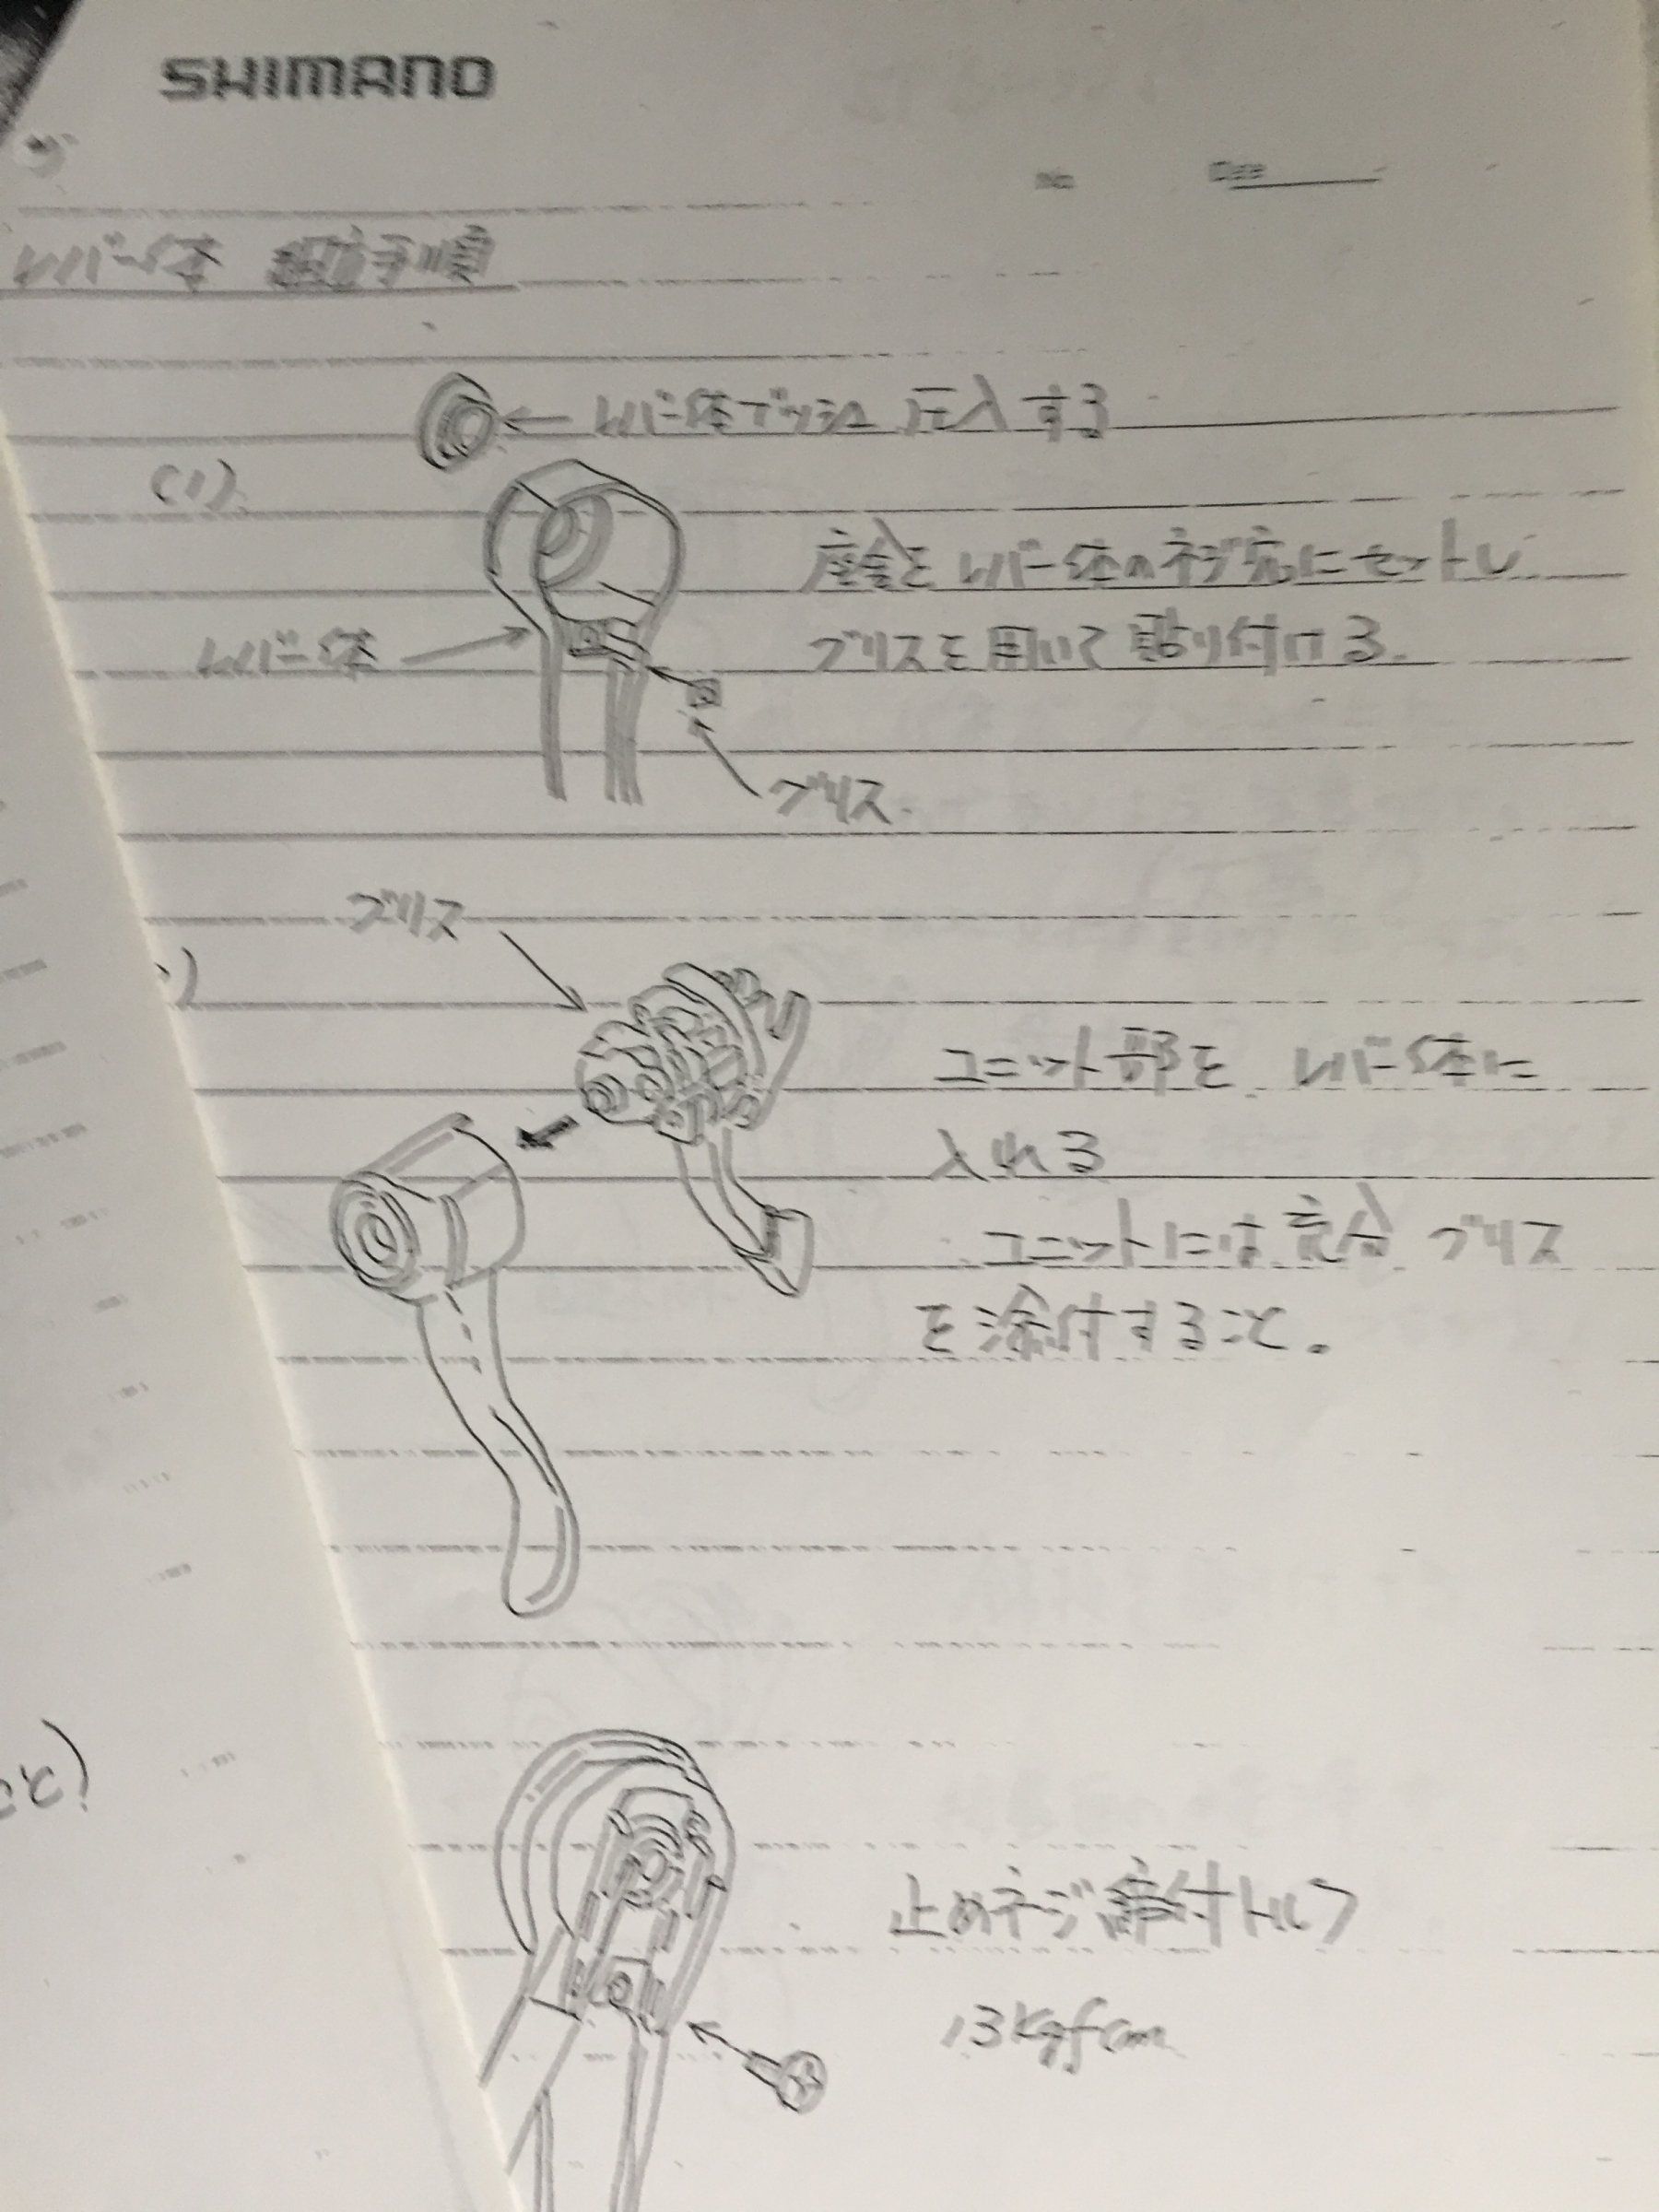 SHIMANO
No. Date
レバー体 組立手順
レバー体ブッシュ圧入する
(1)
座金をレバー体のネジ穴にセットし
レバー体
グリスを用いて貼り付ける.
グリス.
グリス
)
ユニット部を レバー体に
入れる
ユニットには充分 グリス
を塗付すること。
こと)
止めネジ締付トルク
13kgfcm